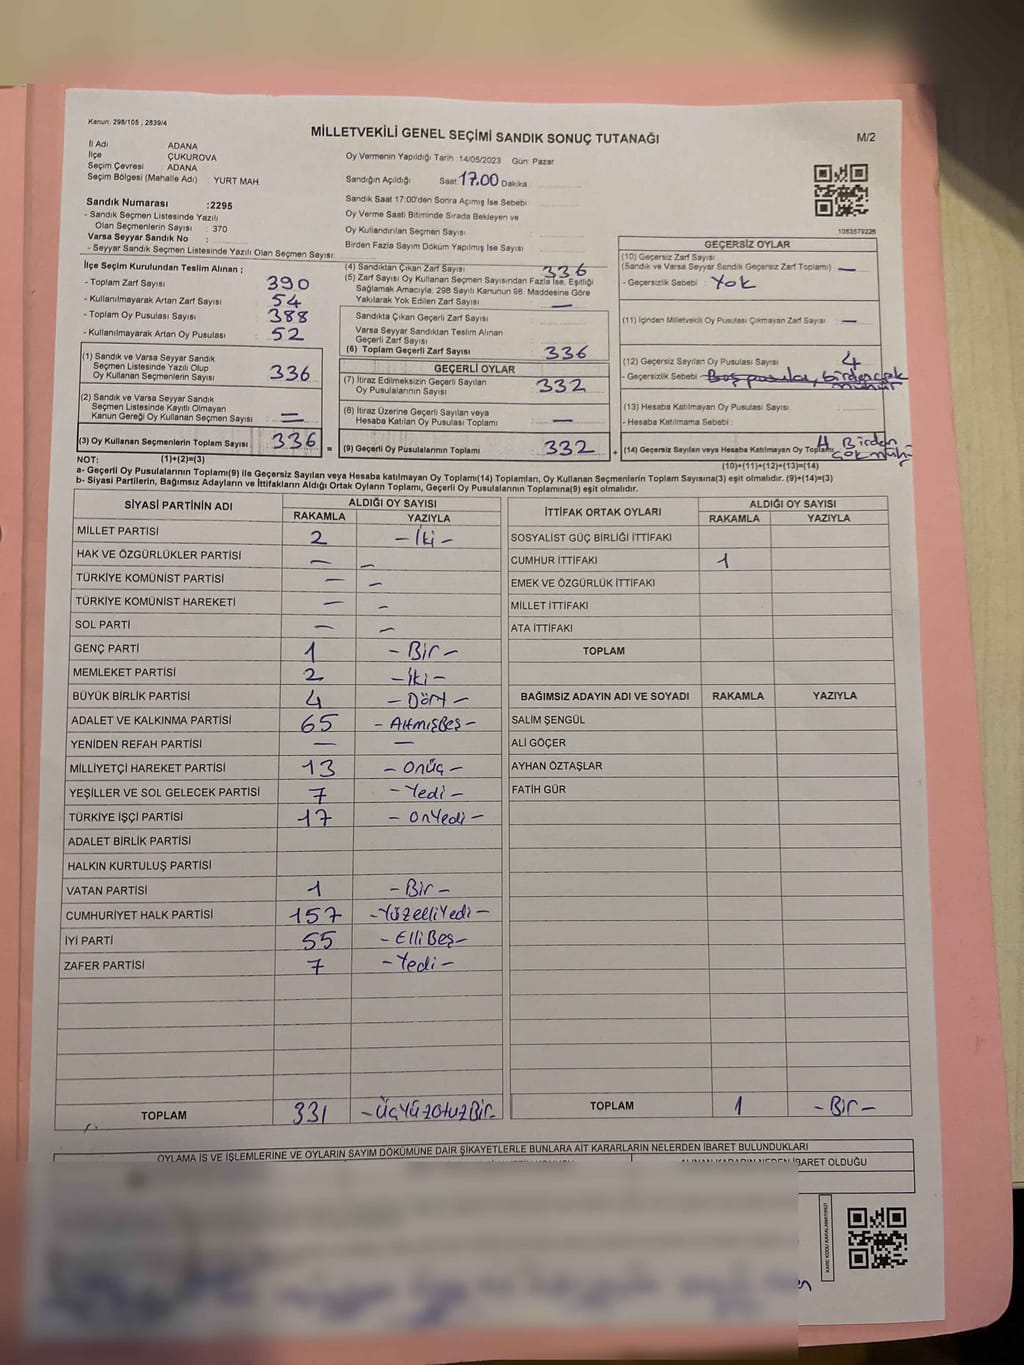 Kanun: 298/105 , 2839/4
MİLLETVEKİLİ GENEL SEÇİMİ SANDIK SONUÇ TUTANAĞI
M/2
İl Adı ADANA
İlçe ÇUKUROVA
Seçim Çevresi ADANA
Seçim Bölgesi (Mahalle Adı) YURT MAH
Sandık Numarası :2295
- Sandık Seçmen Listesinde Yazılı
Olan Seçmenlerin Sayısı : 370
Varsa Seyyar Sandık No :
- Seyyar Sandık Seçmen Listesinde Yazılı Olan Seçmen Sayısı:
Oy Vermenin Yapıldığı Tarih :14/05/2023 Gün: Pazar
Sandığın Açıldığı Saat 17.00 Dakika
Sandık Saat 17:00'den Sonra Açımış İse Sebebi
Oy Verme Saati Bitiminde Sırada Bekleyen ve
Oy Kullandırılan Seçmen Sayısı
Birden Fazla Sayım Döküm Yapılmış İse Sayısı
1083579226
İlçe Seçim Kurulundan Teslim Alınan ;
- Toplam Zarf Sayısı 390
- Kullanılmayarak Artan Zarf Sayısı 54
- Toplam Oy Pusulası Sayısı 388
- Kullanılmayarak Artan Oy Pusulası 52
(1) Sandık ve Varsa Seyyar Sandık
Seçmen Listesinde Yazılı Olup
Oy Kullanan Seçmenlerin Sayısı 336
(2) Sandık ve Varsa Seyyar Sandık
Seçmen Listesinde Kayıtlı Olmayan
Kanun Gereği Oy Kullanan Seçmen Sayısı : —
(3) Oy Kullanan Seçmenlerin Toplam Sayısı 336 =
(4) Sandıktan Çıkan Zarf Sayısı 336
(5) Zarf Sayısı Oy Kullanan Seçmen Sayısından Fazla İse, Eşitliği
Sağlamak Amacıyla; 298 Sayılı Kanunun 98. Maddesine Göre
Yakılarak Yok Edilen Zarf Sayısı —
Sandıkta Çıkan Geçerli Zarf Sayısı
Varsa Seyyar Sandıktan Teslim Alınan
Geçerli Zarf Sayısı
(6) Toplam Geçerli Zarf Sayısı 336
GEÇERLİ OYLAR
(7) İtiraz Edilmeksizin Geçerli Sayılan
Oy Pusulalarının Sayısı 332
(8) İtiraz Üzerine Geçerli Sayılan veya
Hesaba Katılan Oy Pusulası Toplamı —
(9) Geçerli Oy Pusulalarının Toplamı 332 +
GEÇERSİZ OYLAR
(10) Geçersiz Zarf Sayısı
(Sandık ve Varsa Seyyar Sandık Geçersiz Zarf Toplamı) —
- Geçersizlik Sebebi : Yok
(11) İçinden Milletvekili Oy Pusulası Çıkmayan Zarf Sayısı —
(12) Geçersiz Sayılan Oy Pusulası Sayısı 4
- Geçersizlik Sebebi Boş pusula, birden çok
mühür
(13) Hesaba Katılmayan Oy Pusulası Sayısı
- Hesaba Katılmama Sebebi :
(14) Geçersiz Sayılan veya Hesaba Katılmayan Oy Toplamı 4 Birden
çok müh.
NOT: (1)+(2)=(3)
(10)+(11)+(12)+(13)=(14)
a- Geçerli Oy Pusulalarının Toplamı(9) ile Geçersiz Sayılan veya Hesaba katılmayan Oy Toplamı(14) Toplamları, Oy Kullanan Seçmenlerin Toplam Sayısına(3) eşit olmalıdır. (9)+(14)=(3)
b- Siyasi Partilerin, Bağımsız Adayların ve İttifakların Aldığı Oyların Toplamı, Geçerli Oy Pusulalarının Toplamına(9) eşit olmalıdır.
SİYASİ PARTİNİN ADI ALDIĞI OY SAYISI
RAKAMLA YAZIYLA
MİLLET PARTİSİ 2 - İki -
HAK VE ÖZGÜRLÜKLER PARTİSİ — —
TÜRKİYE KOMÜNİST PARTİSİ — —
TÜRKİYE KOMÜNİST HAREKETİ — —
SOL PARTİ — —
GENÇ PARTİ 1 - Bir -
MEMLEKET PARTİSİ 2 - İki -
BÜYÜK BİRLİK PARTİSİ 4 - Dört -
ADALET VE KALKINMA PARTİSİ 65 - Altmışbeş -
YENİDEN REFAH PARTİSİ — —
MİLLİYETÇİ HAREKET PARTİSİ 13 - onüç -
YEŞİLLER VE SOL GELECEK PARTİSİ 7 - Yedi -
TÜRKİYE İŞÇİ PARTİSİ 17 - onYedi -
ADALET BİRLİK PARTİSİ
HALKIN KURTULUŞ PARTİSİ
VATAN PARTİSİ 1 - Bir -
CUMHURİYET HALK PARTİSİ 157 - YüzelliYedi -
İYİ PARTİ 55 - ElliBeş -
ZAFER PARTİSİ 7 - Yedi -
TOPLAM 331 - ÜçYüzotuzBir -
İTTİFAK ORTAK OYLARI ALDIĞI OY SAYISI
RAKAMLA YAZIYLA
SOSYALİST GÜÇ BİRLİĞİ İTTİFAKI
CUMHUR İTTİFAKI 1
EMEK VE ÖZGÜRLÜK İTTİFAKI
MİLLET İTTİFAKI
ATA İTTİFAKI
TOPLAM
BAĞIMSIZ ADAYIN ADI VE SOYADI RAKAMLA YAZIYLA
SALİM ŞENGÜL
ALİ GÖÇER
AYHAN ÖZTAŞLAR
FATİH GÜR
TOPLAM 1 - Bir -
OYLAMA İŞ VE İŞLEMLERİNE VE OYLARIN SAYIM DÖKÜMÜNE DAİR ŞİKAYETLERLE BUNLARA AİT KARARLARIN NELERDEN İBARET BULUNDUKLARI
ALINAN KARARIN NEDEN İBARET OLDUĞU